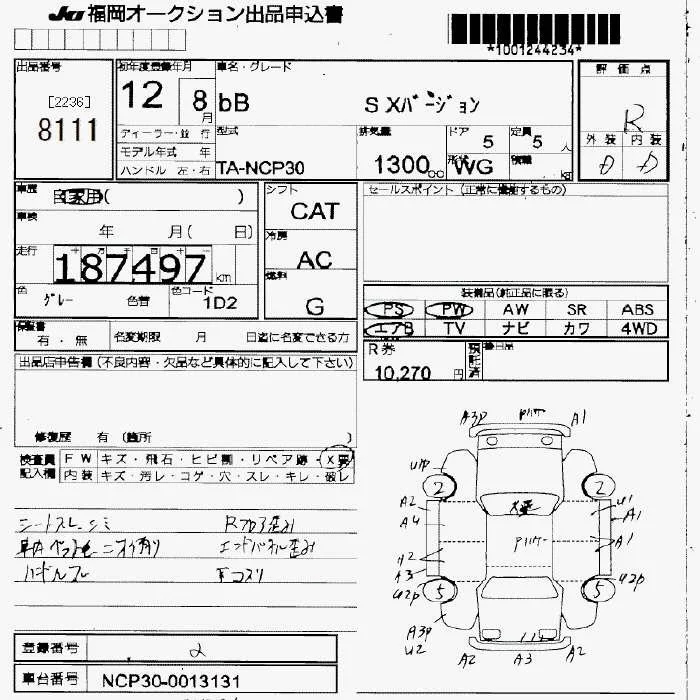 JU 福岡オークション出品申込書
*1001244234*
出品番号
[2236]
8111
初年度登録年月
12 8月
車名・グレード
bB S Xバージョン
評価点
R
外装 内装
D D
ディーラー・並行
モデル年式 年
ハンドル 左・右
型式
TA-NCP30
排気量
1300cc
ドア 5
定員 5人
形状 WG
積載 kg
車歴 自家用( )
車検 年 月( 日)
走行 187,497km
色 グレー 色替
色コード 1D2
シフト
CAT
冷房
AC
燃料
G
セールスポイント(正常に機能するもの)
装備品(純正品に限る)
PS PW AW SR ABS
エアB TV ナビ カワ 4WD
保証書
有・無
名変期限 月 日迄に名変できる方
R券
10,270円
預託済
後日品
出品店申告欄(不良内容・欠品など具体的に記入して下さい)
修復歴 有 (箇所 )
検査員記入欄
FW キズ・飛石・ヒビ割・リペア跡・X要
内装 キズ・汚レ・コゲ・穴・スレ・キレ・破レ
A3P A1
U1P
2 2
A2 U1
A4 A1
大変
A2 A1
A3
U2P U2P
5 5
A3P
U2
A1
A2 A3 A2
登録番号 2
車台番号 NCP30-0013131